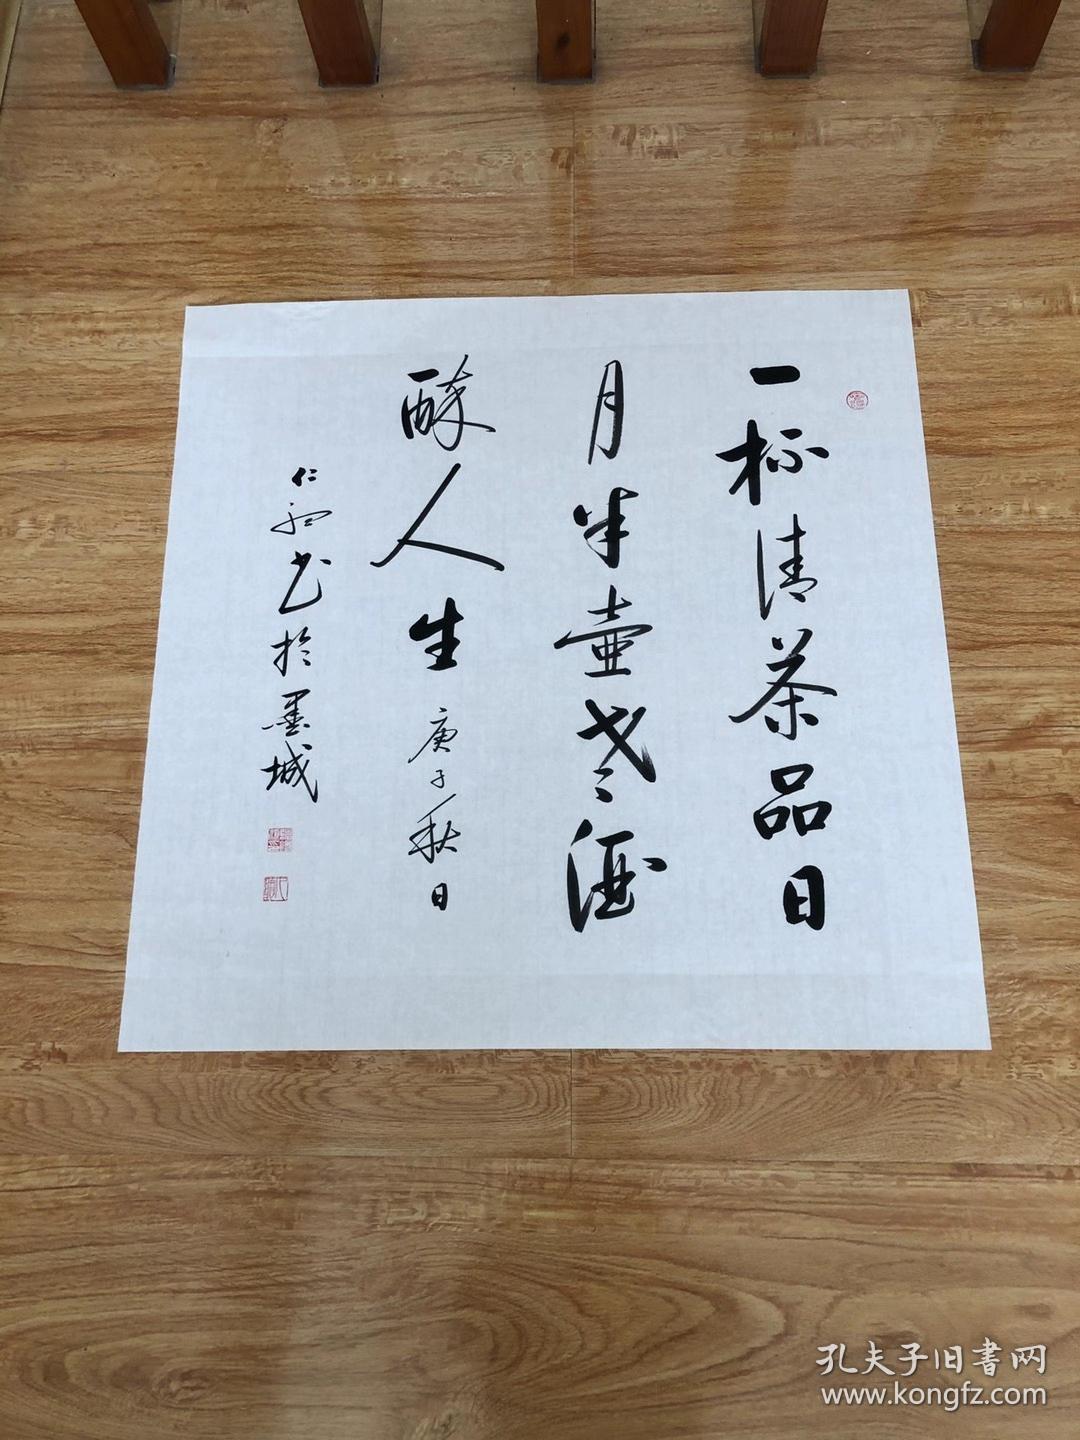 一杯清茶品日
月半壶老酒
醉人生庚子秋日
仁 书於墨城
孔夫子旧書网
www.kongfz.com